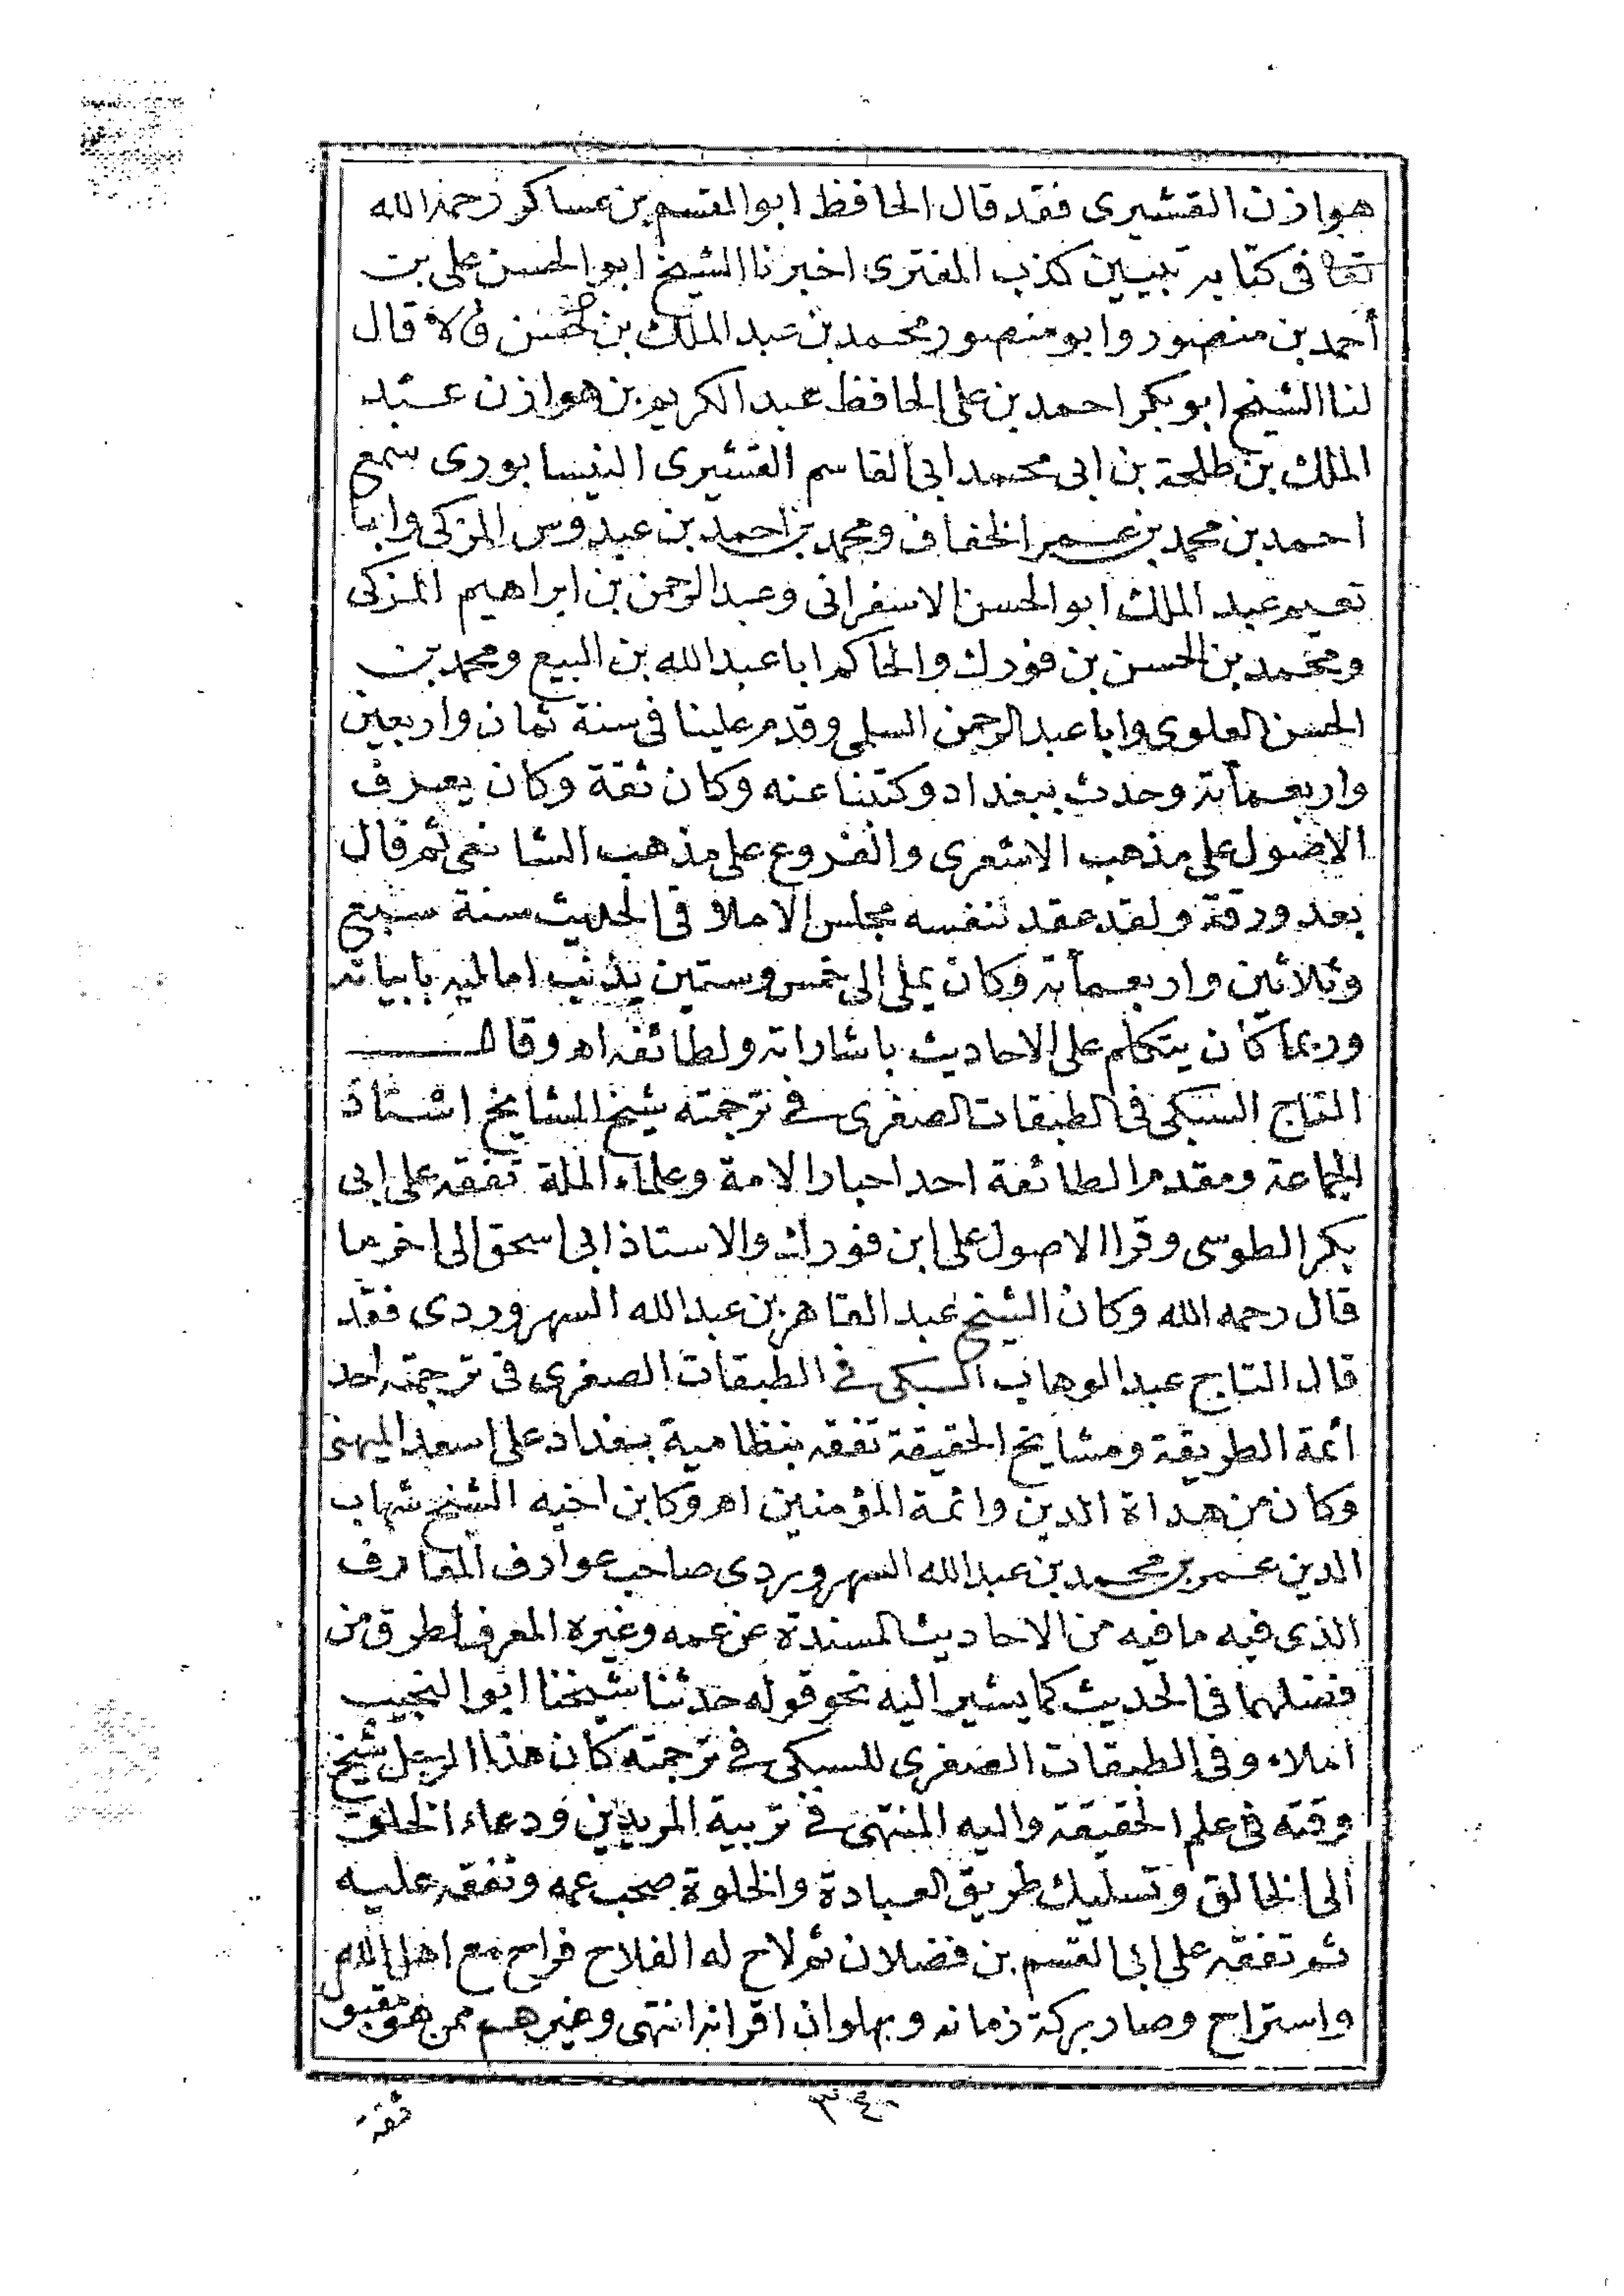 هوازن القشيرى فقد قال الحافظ ابوالقسم بن عساكر رحمه الله
تعا فى كتابه تبيين كذب المفترى اخبرنا الشيخ ابوالحسن على بن
أحمد بن منصور وابومنصور محمد بن عبد الملك بن قالا قال
لنا الشيخ ابوبكر احمد بن على الحافظ عبد الكريم بن هوازن عبد
الملك بن طلحة بن ابى محمد ابى القاسم القشيرى النيسابورى سمع
احمد بن محمد بن عمر الخفاف ومحمد بن احمد بن عبدوس المزكى وابا
نعيم عبد الملك ابو الحسن الاسفرانى وعبد الرحمن بن ابراهيم المزكى
ومحمد بن الحسن بن فورك والحاكم ابا عبد الله بن البيع ومحمد بن
الحسن العلوى وابا عبد الرحمن السلمى وقدم علينا فى سنة ثمان واربعين
واربعمأية وحدث ببغداد وكتبنا عنه وكان ثقة وكان يعرف
الاصول على مذهب الاشعرى والفروع على مذهب الشافعى ثم قال
بعد ورقة ولقد عقد لنفسه مجلس الاملاء فى الحديث سنة سبع
وثلاثين واربعمأية وكان يملى الى خمس وستين يذنب اماليه بابياته
وربما كان يتكلم على الاحاديث باشاراته ولطائفه اه وقال
التاج السبكى فى الطبقات الصغرى فى ترجمته شيخ المشايخ استاذ
الجماعة ومقدم الطائفة احد احبار الامة وعلماء الملة تفقه على ابى
بكر الطوسى وقرا الاصول على ابن فورك والاستاذ ابى اسحق الى اخر ما
قال رحمه الله وكان الشيخ عبد القاهر بن عبد الله السهروردى فقد
قال التاج عبد الوهاب السبكى فى الطبقات الصغرى فى ترجمته احد
ائمة الطريقة ومشايخ الحقيقة تفقه بنظامية بغداد على اسعد الميهنى
وكان من هداة الدين وائمة المؤمنين اه وكابن اخيه الشيخ شهاب
الدين عمر بن محمد بن عبد الله السهروردى صاحب عوارف المعارف
الذى فيه ما فيه من الاحاديث المسندة عن عمه وغيره المعرف لطرق من
فضلهما فى الحديث كما يشير اليه نحو قوله حدثنا شيخنا ابو النجيب
املاء وفى الطبقات الصغرى للسبكى فى ترجمته كان هذا الرجل شيخ
وقته فى علم الحقيقة واليه المنتهى فى تربية المريدين ودعاء الخلق
الى الخالق وتسليك طريق العبادة والخلوة صحب عمه وتفقه عليه
ثم تفقه على ابى القسم بن فضلان ثم لاح له الفلاح فراح مع اهل الله
واستراح وصار بركة زمانه وبهلوان اقرانه انتهى وغيرهم ممن هو مقبو
٣٤٠
ثقة